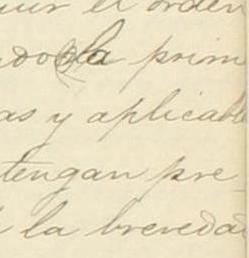 uir el orden
ndo la prim
as y aplicabl
tengan pre
la brevedad